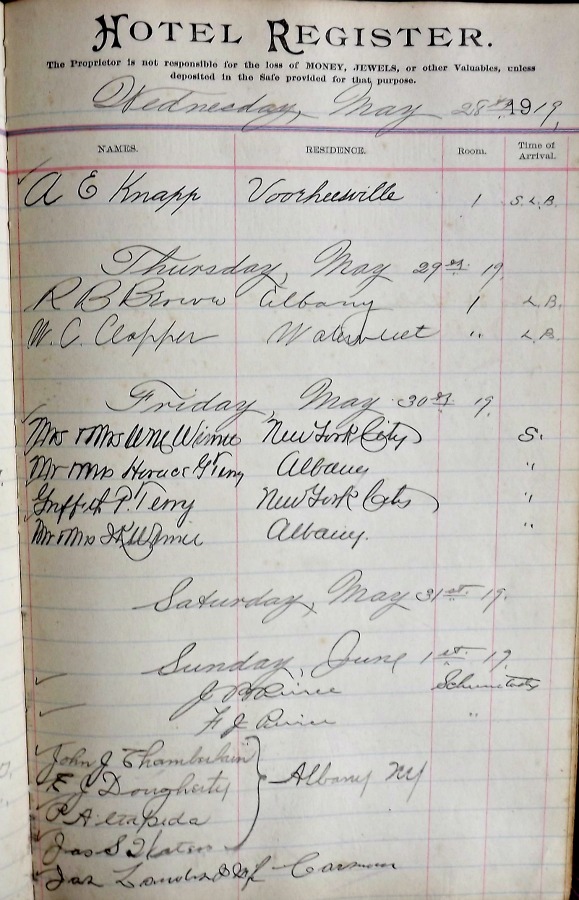 HOTEL REGISTER.
The Proprietor is not responsible for the loss of MONEY, JEWELS, or other Valuables, unless
deposited in the Safe provided for that purpose.
Wednesday, May 28th 1919,
NAMES. RESIDENCE. Room. Time of Arrival.
A E Knapp Voorheesville 1 S. L. B.
Thursday, May 29th 19,
R B Brown Albany 1 L. B.
W. C. Clapper Watervliet " L. B.
Friday, May 30th 19,
Mrs Wm Winne New York City S.
Mr Mrs Horace G Terry Albany "
Griffith P. Terry New York City "
Mr & Mrs Winne Albany. "
Saturday, May 31st 19,
Sunday, June 1st 19,
J
F J "
John J Chamberlain
E J Dougherty Albany NY
P.
Jas S
Jas